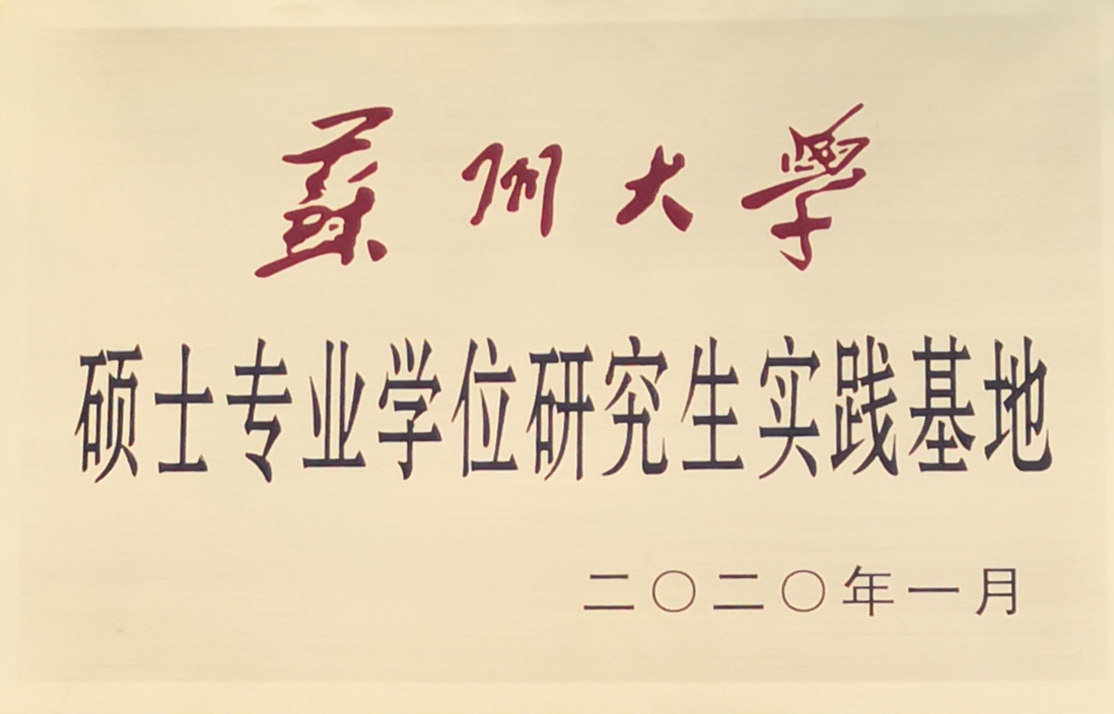 蘇州大學
硕士专业学位研究生实践基地
二〇二〇年一月